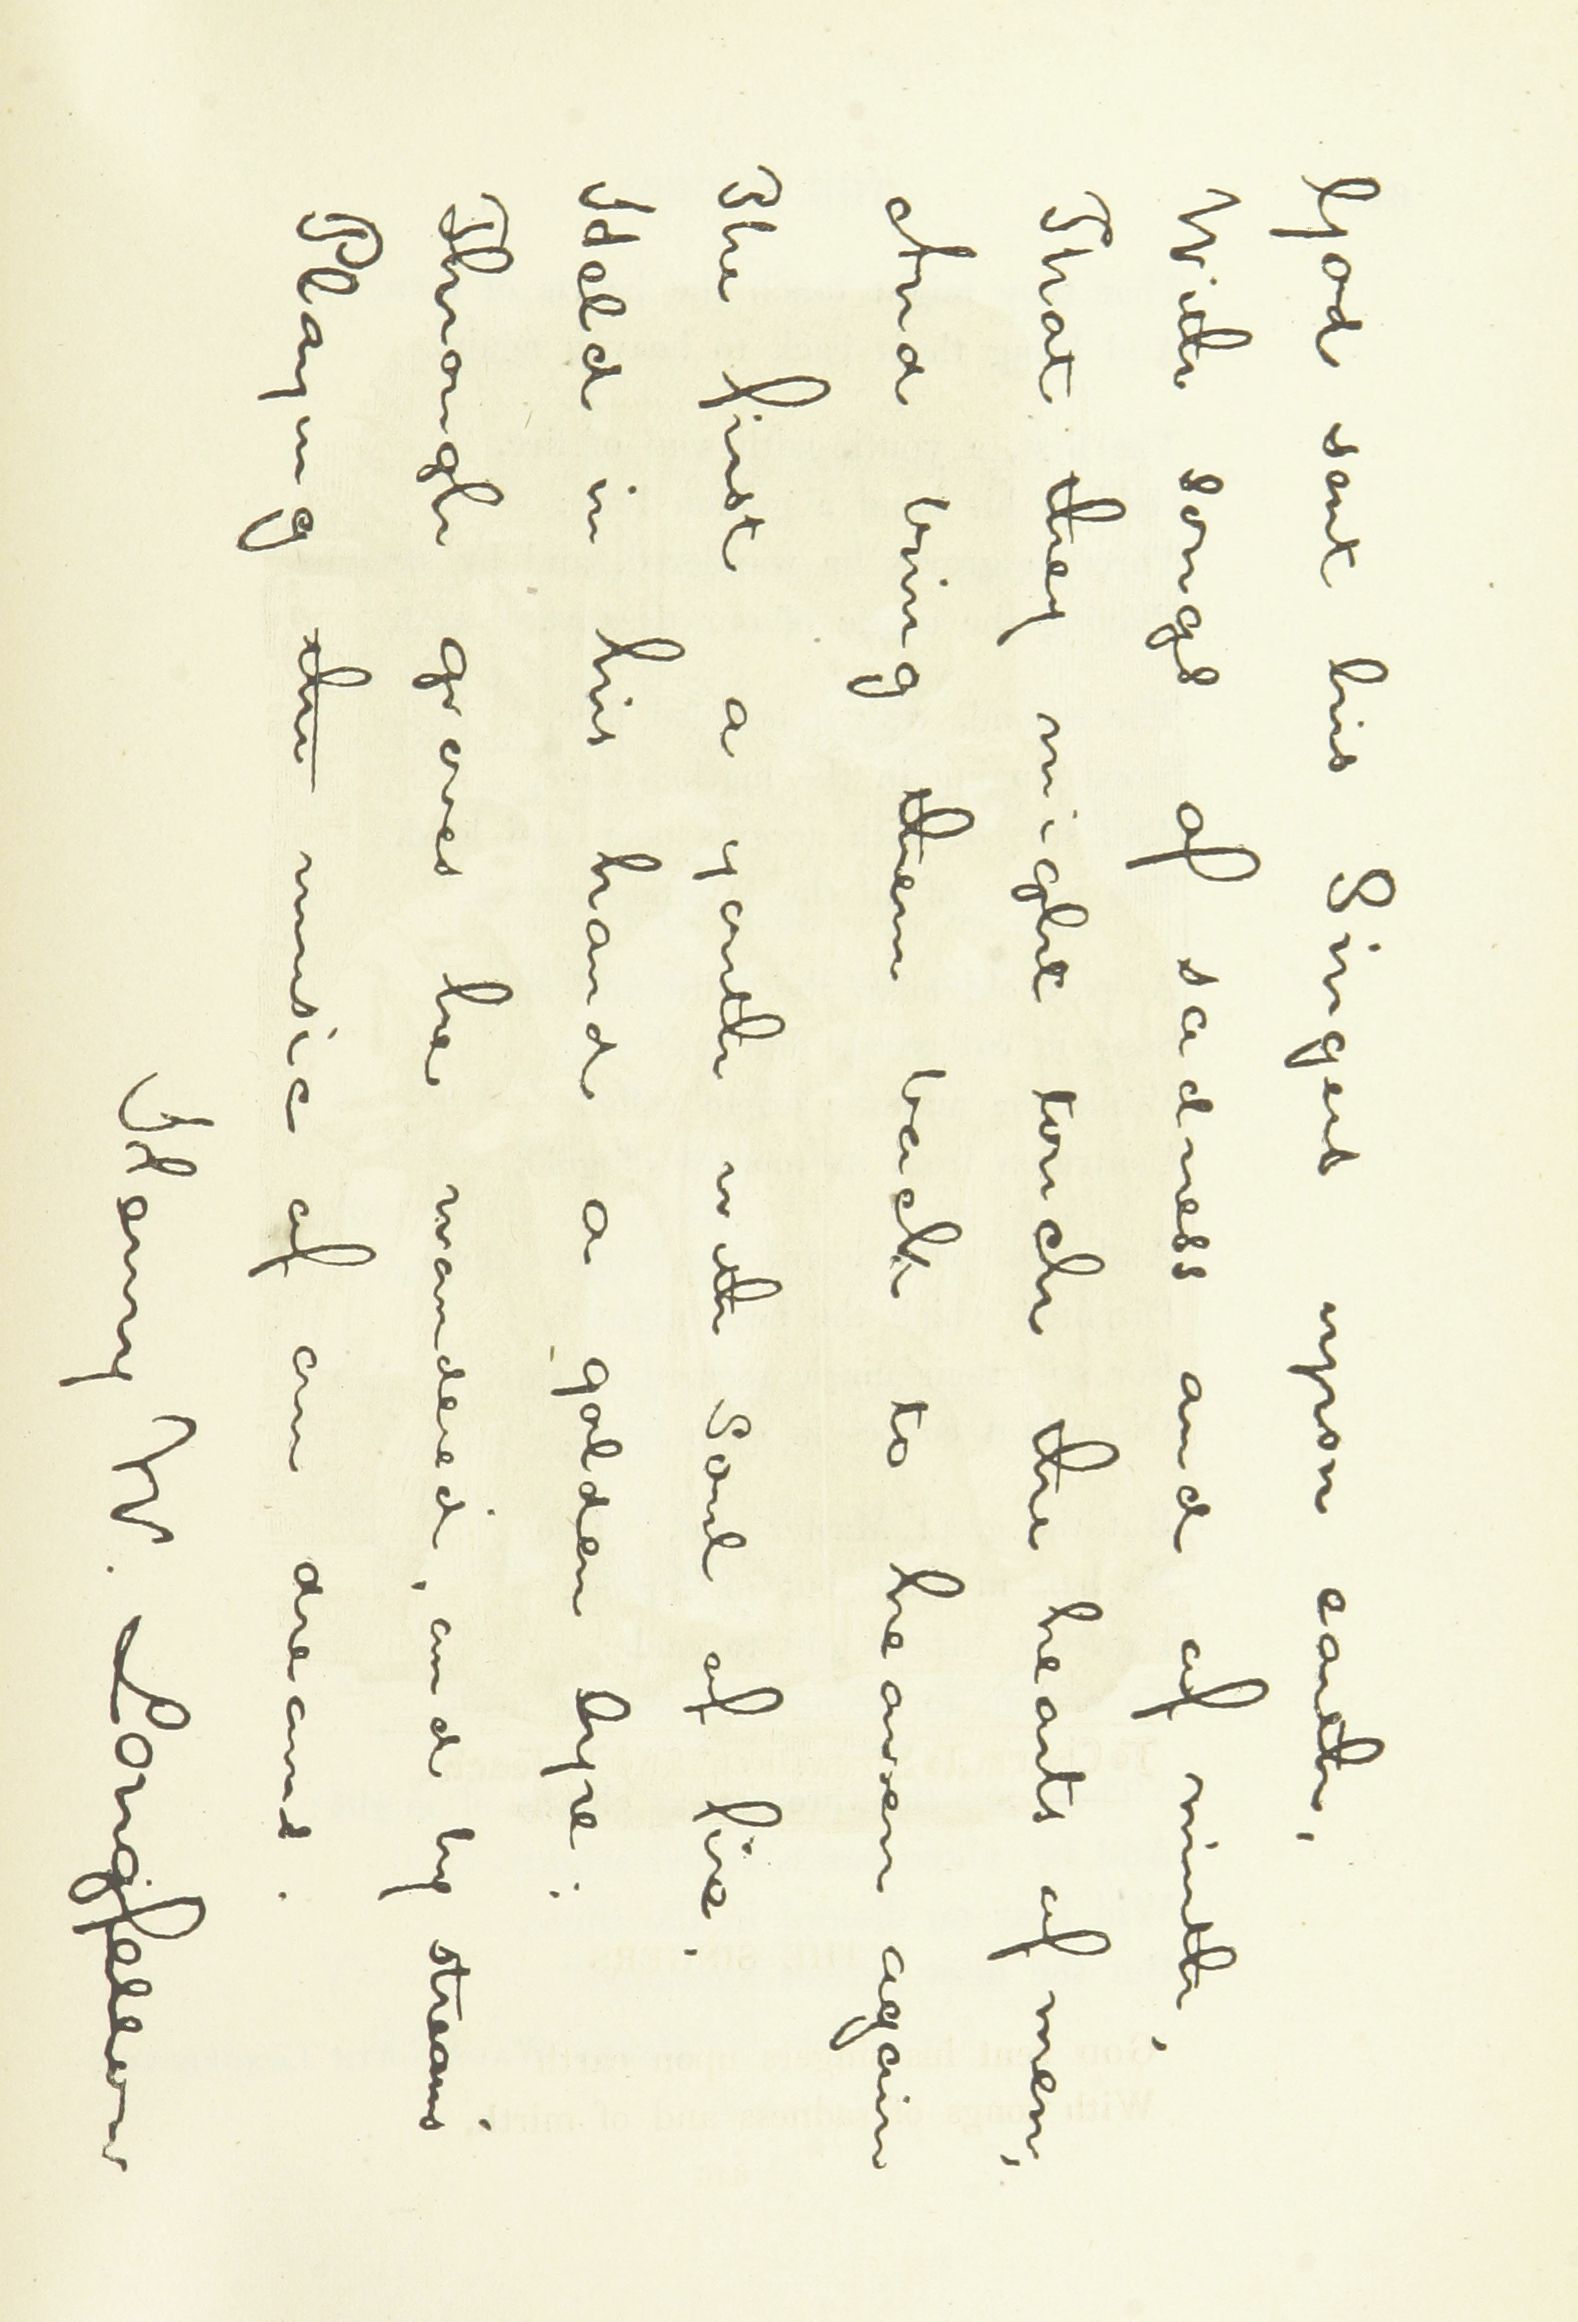 God sent his Singers upon earth,
With songs of sadness and of mirth,
That they might touch the hearts of men,
And bring them back to heaven again
The first a youth with Soul of fire.
Held in his hand a golden lyre:
Through groves he wandered, and by streams
Playing the music of our dreams.
Henry W. Longfellow